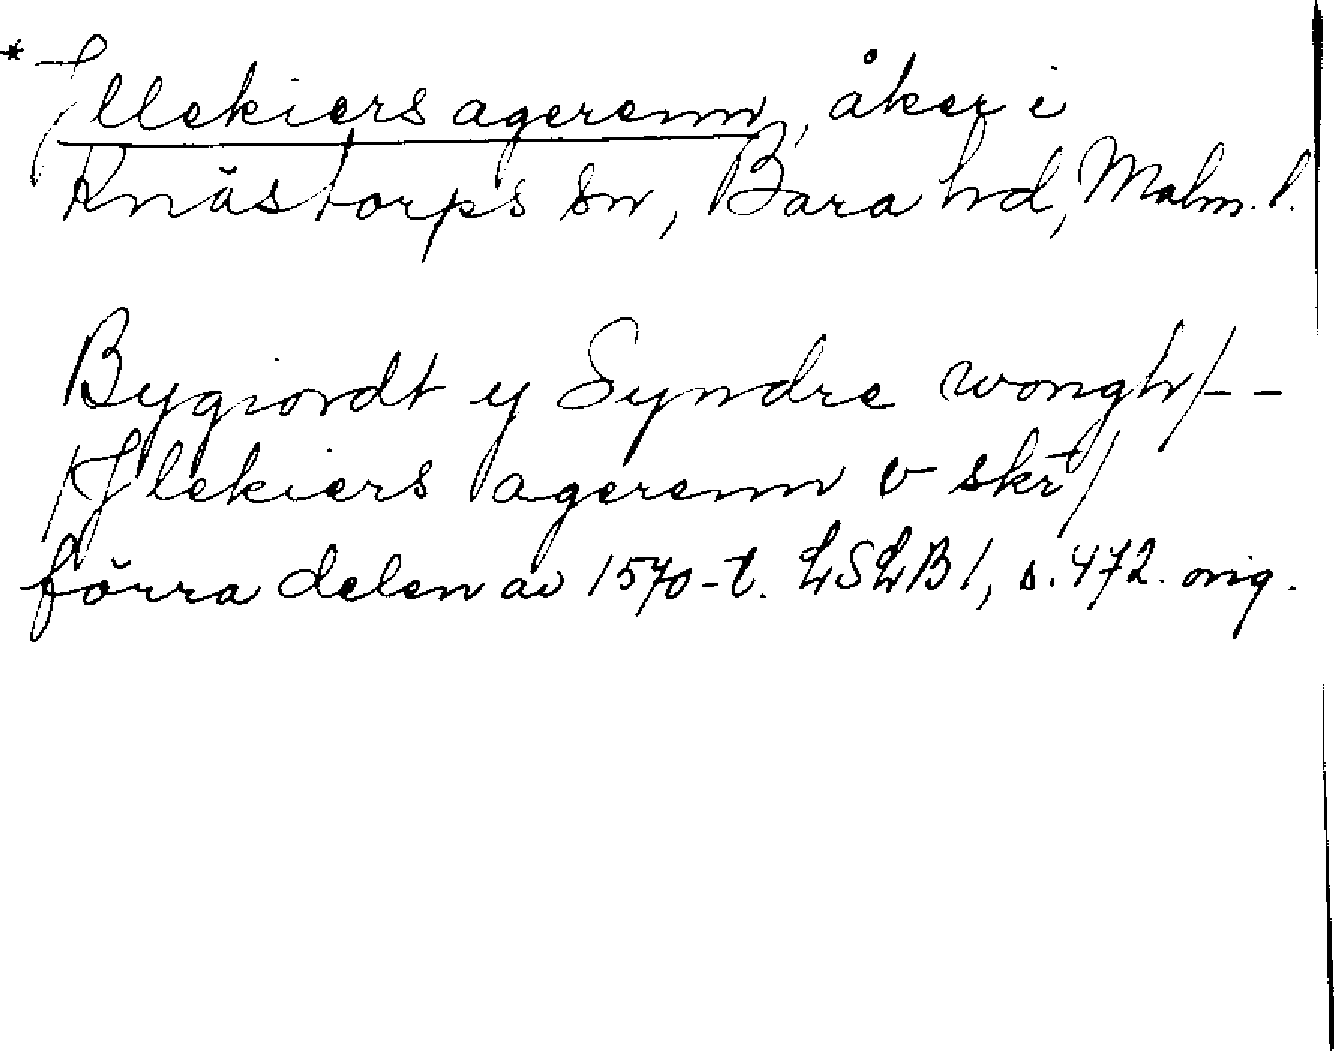 * Jllekiers agerenn, åker i
Knästorps sn, Bara hd, Malm. l.
Bygiordt y Syndre wongh/--
/Jlekiers agerenn v skr̄/
förra delen av 1570-t. LSLB 1, s. 472. orig.